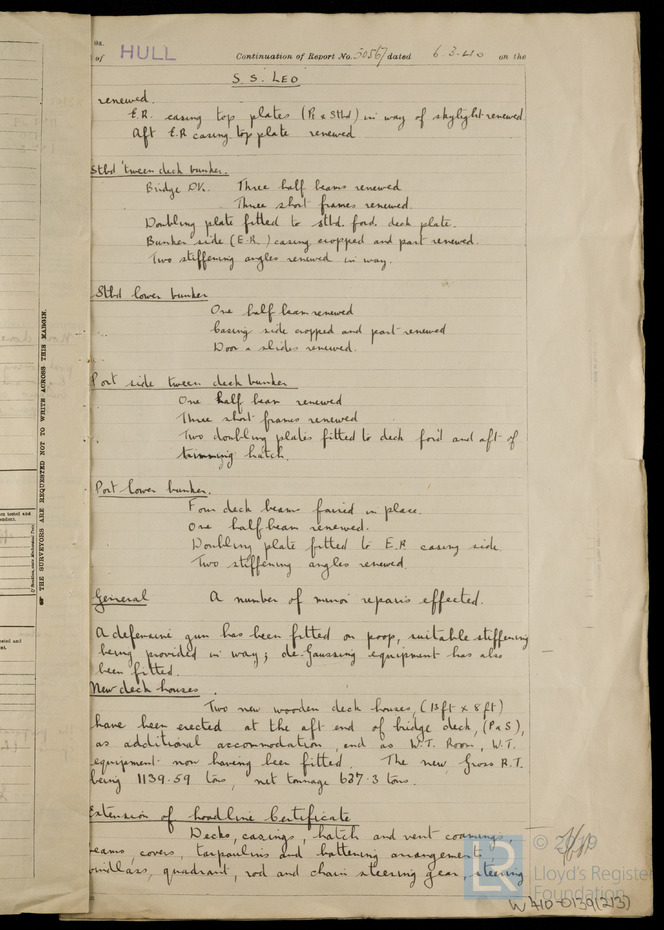 of HULL Continuation of Report No. 50567 dated 6-3-40 on the
S. S. LEO
renewed.
E.R. casing top plates (Pt & Stbd) in way of skylight renewed
Aft E.R casing top plate renewed
Stbd 'tween deck bunker.
Bridge DK. Three half beams renewed
Three short frames renewed.
Doubling plate fitted to stbd. ford. deck plate.
Bunker side (E.R.) casing cropped and part renewed.
Two stiffening angles renewed in way.
Stbd lower bunker
One half beam renewed
Casing side cropped and part renewed
Door & slides renewed.
Port side tween deck bunker
One half beam renewed
Three short frames renewed
Two doubling plates fitted to deck for'd and aft of
trimming hatch.
Port lower bunker.
Four deck beams faired in place.
One half beam renewed.
Doubling plate fitted to E.R casing side.
Two stiffening angles renewed.
General A number of minor repairs effected.
A defensive gun has been fitted on poop, suitable stiffening
being provided in way; de-Gaussing equipment has also
been fitted.
New deck houses.
Two new wooden deck houses, (13ft x 8ft)
have been erected at the aft end of bridge deck, (P&S),
as additional accommodation, and as W.T. Room, W.T.
equipment now having been fitted. The new Gross R.T.
being 1139.59 tons, net tonnage 637.3 tons.
Extension of Loadline Certificate
Decks, casings, hatch and vent coamings
beams, covers, tarpaulins and battening arrangements,
windlass, quadrant, rod and chain steering gear, steering
THE SURVEYORS ARE REQUESTED NOT TO WRITE ACROSS THIS MARGIN.
© 2019
LR
Lloyd's Register
Foundation
W410-0139(2/3)